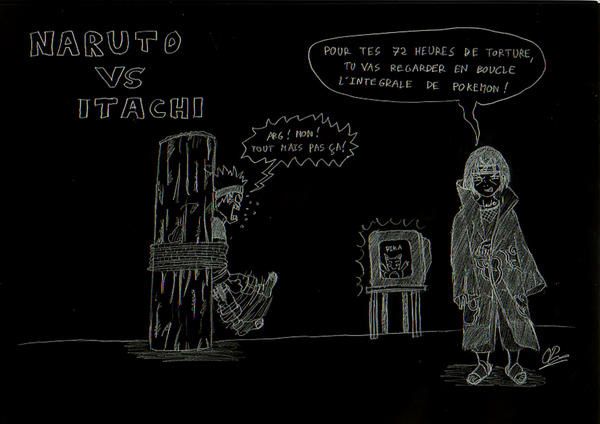 NARUTO
VS
ITACHI
POUR TES 72 HEURES DE TORTURE,
TU VAS REGARDER EN BOUCLE
L'INTÉGRALE DE POKEMON !
ARG ! NON !
TOUT MAIS PAS ÇA !
PIKA